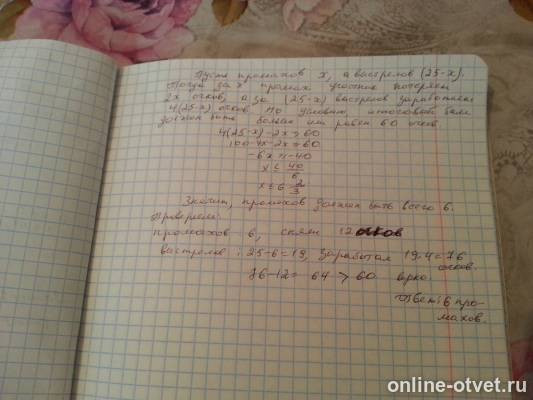 Пусть промахов x, а выстрелов (25-x).
Тогда за x промах участник потеряет
2x очков, а за (25-x) выстрелов заработает
4(25-x) очков. По условию, итоговый балл
должен быть больше или равен 60 очков
4(25-x)-2x≥60
100-4x-2x≥60
-6x≥-40
x≤40/6
x≤6 2/3
Значит, промахов должен быть всего 6.
Проверяем:
промахов 6, снял 12 очков
вастрелов: 25-6=19, заработал 19·4=76
очков.
76-12=64>60 верно.
Ответ: 6 про-
махов.
online-otvet.ru